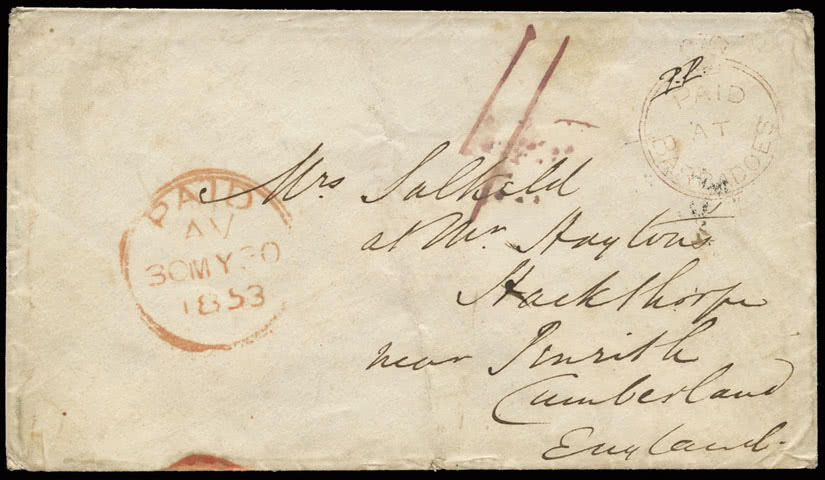 p.p
PAID
AT
BARBADOES
PAID
AV
30MY30
1853
Mrs Salkeld
at Mr Haytons
Hackthorpe
near Penrith
Cumberland
England.